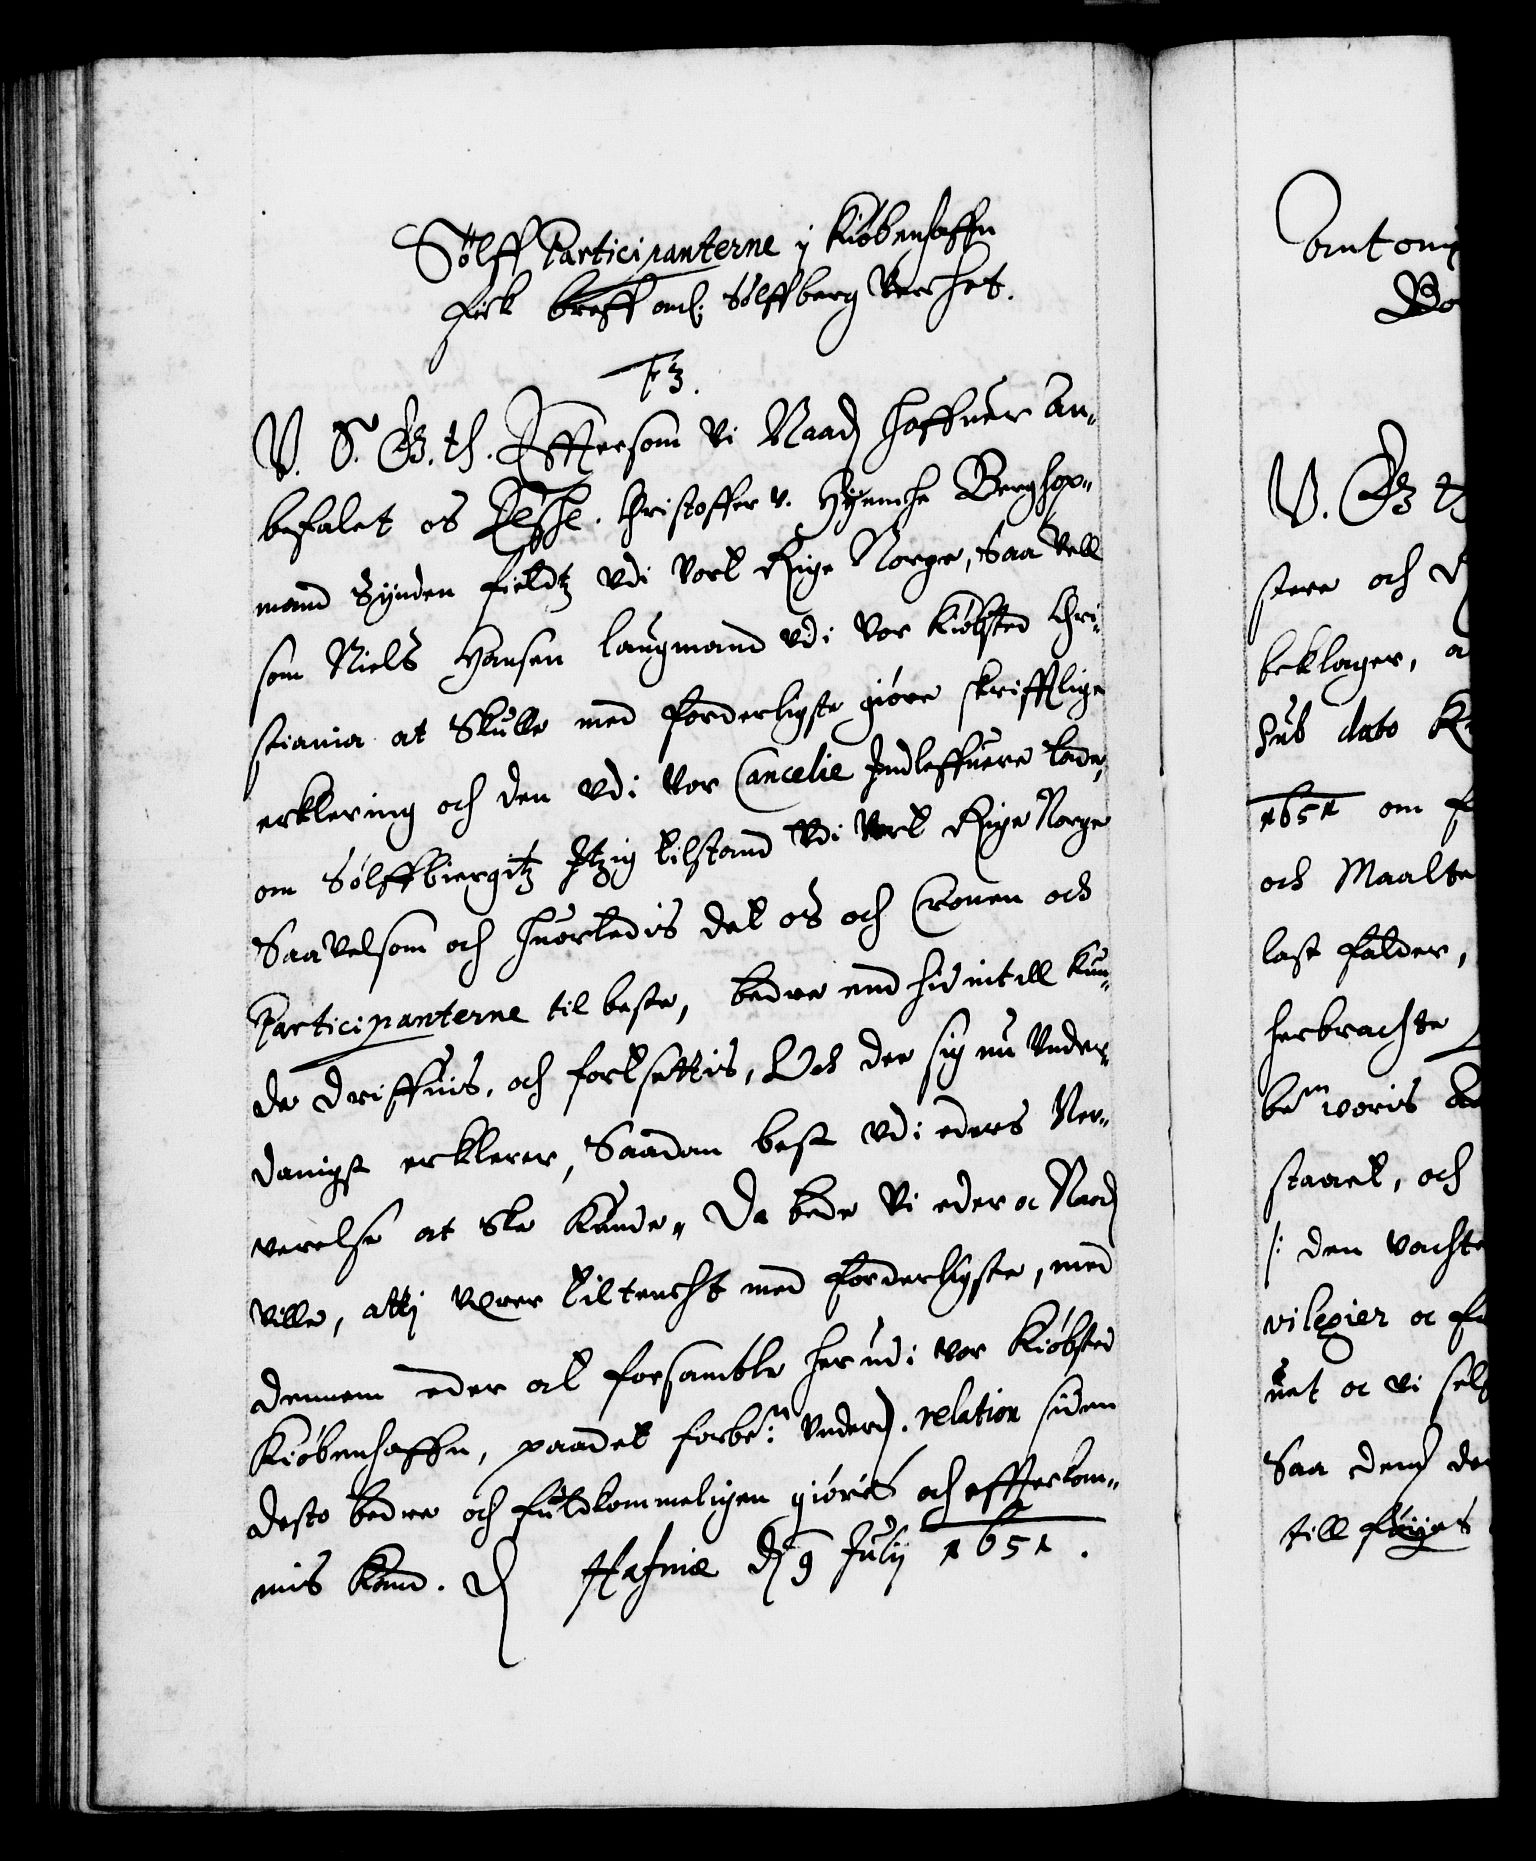 Sølff Participanterne i Kiøbenhaffn
fick breff anl: Sølffberg Verchet.
F3.
V. S. G. th. Effttersom Vi Naad: haffuer An-
befalet os Elschl. Christoffer v. Hennche Berghop-
mand Synden fieldtz udi vort Rige Norge, Saa Vell
som Niels Hansen laugmand udi vor Kiøbsted Chri-
stiania at Skulle med forderligste giøre skrifftlige
erklering och den udi vor Cancelie Indleffuere lade,
om Sølffbiergitz Itzig tilstand udi vort Rige Norge
Saavelsom och huorledis det os och Cronen och
Participanterne til beste, bedre end hid indtill Kun-
de driffuis, och fortsettis, Och de sig nu Under-
danigst erklerer, Saadan best udi eders Ner-
verelse at Ske Kunde, Da bede Vi eder oc Naad:
ville, atti verer tiltencht med forderligste, med
dennem eder at forsamble her udi vor Kiøbsted
Kiøbenhaffn, paa det forbe:te Underd. relation siden
desto bedre och fuldkommeligen giøres och effterkom-
mis Kand. D Hafniæ d: 9 Julij 1651.
Amt om
Bo
V. G th
stere och
beklager, a
sub dato K
1651 om f
och Maalte
last falder,
herbrachte
bem:te voris
staaet, och
/: den vachte
vilegier oc f
uet oc vi sel
Saa dend de
till føyes